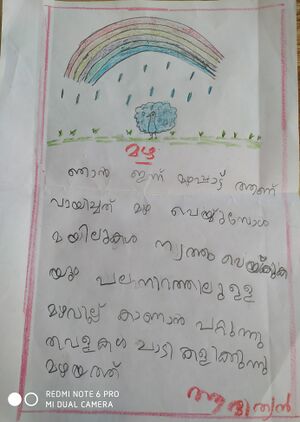 മഴ
ഞാൻ ഇന്ന് മഴപ്പാട്ട് ആണ്
വായിച്ചത് മഴ പെയ്യുമ്പോൾ
മയിലുകൾ നൃത്തം ചെയ്യുക
യും പലനിറത്തിലുള്ള
മഴവില്ല് കാണാൻ പറ്റുന്നു
തവളകൾ പാടി കളിക്കുന്നു
മഴയത്ത്
ആദിത്യൻ
REDMI NOTE 6 PRO
MI DUAL CAMERA